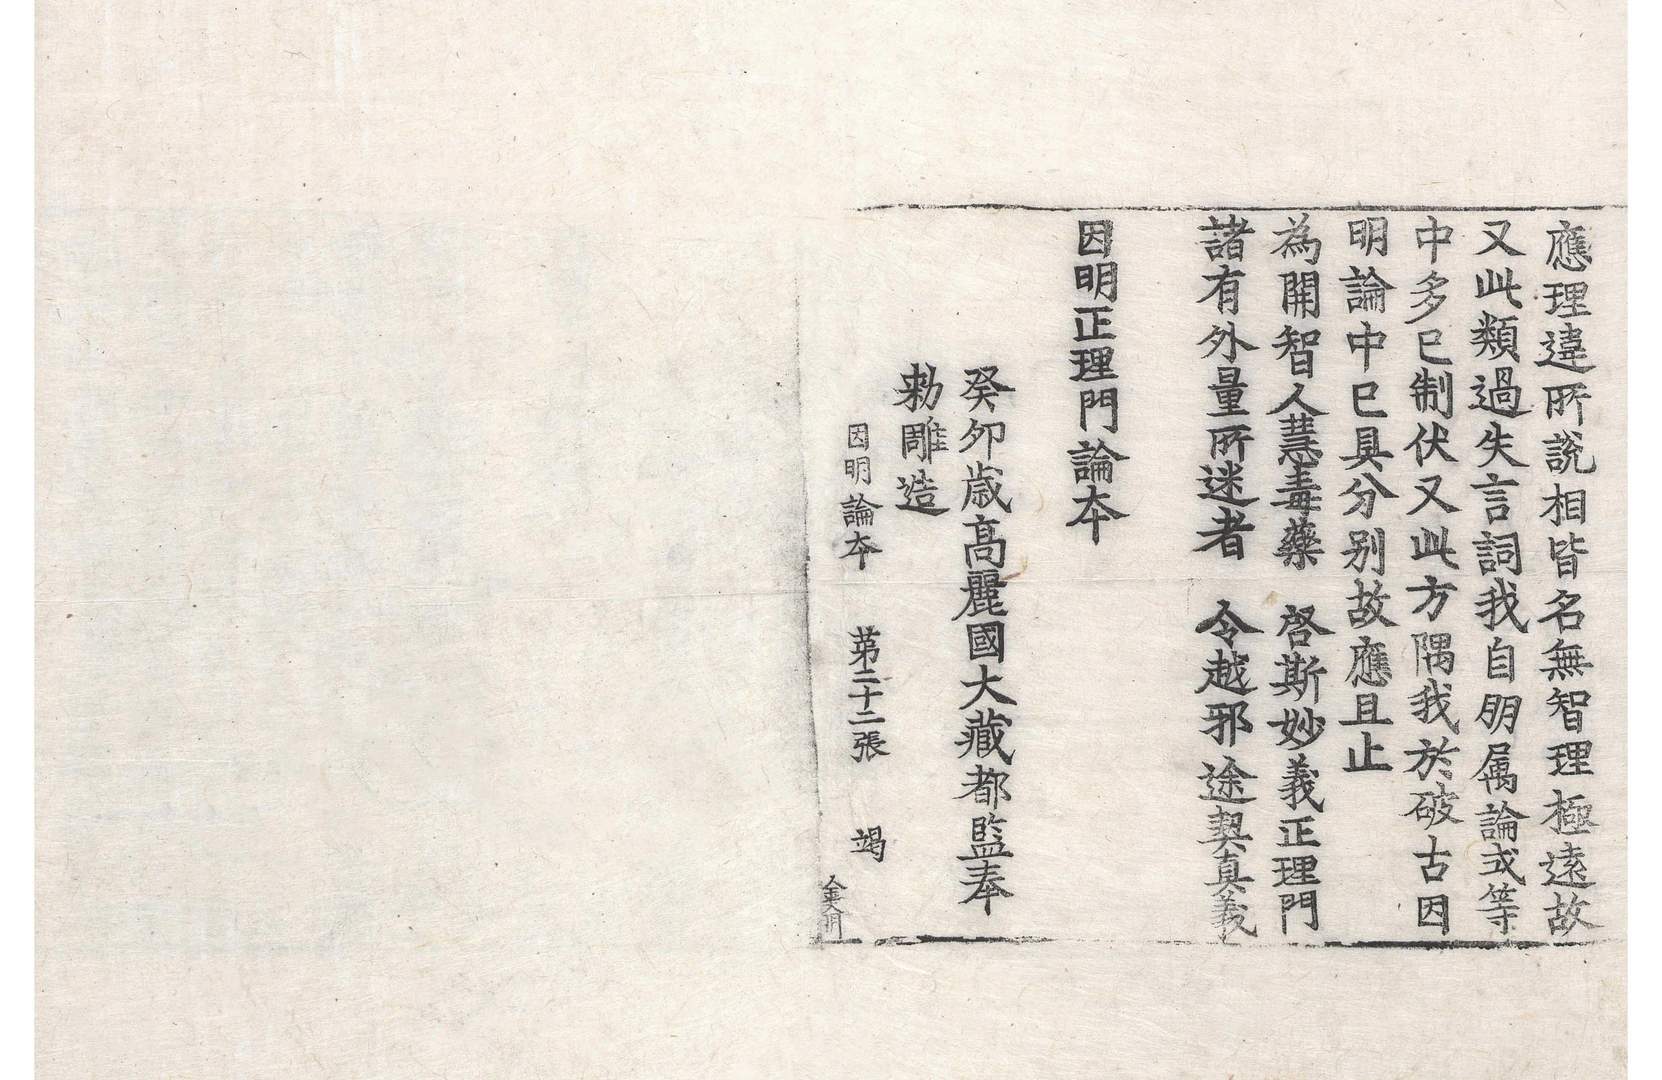 應理違所說相皆名無智理極遠故
又此類過失言詞我自朋属論式等
中多已制伏又此方隅我於破古因
明論中已具分別故應且止
為開智人慧毒藥　啓斯妙義正理門
諸有外量所迷者　令越邪途契真義
因明正理門論本
癸卯歲高麗國大藏都監奉
勑雕造
因明論本　第二十二張　竭